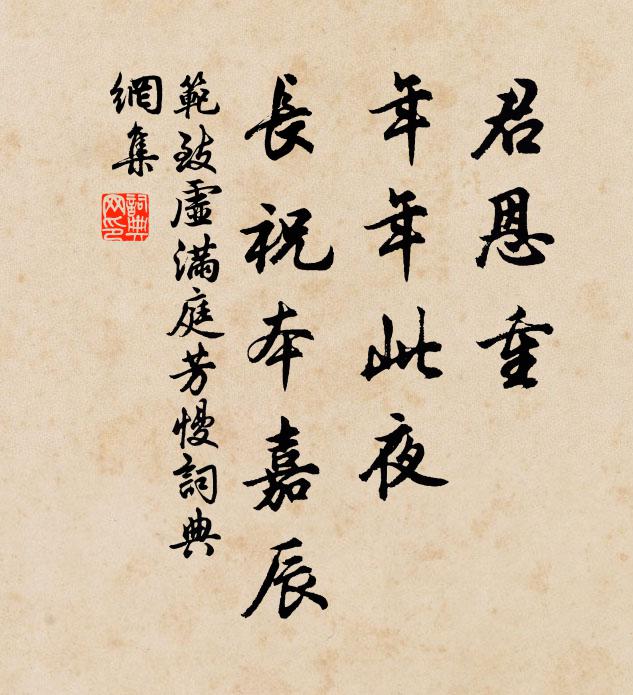 君恩重
年年此夜
長祝本嘉辰
範致虛滿庭芳慢詞典
網集
詞典
网印